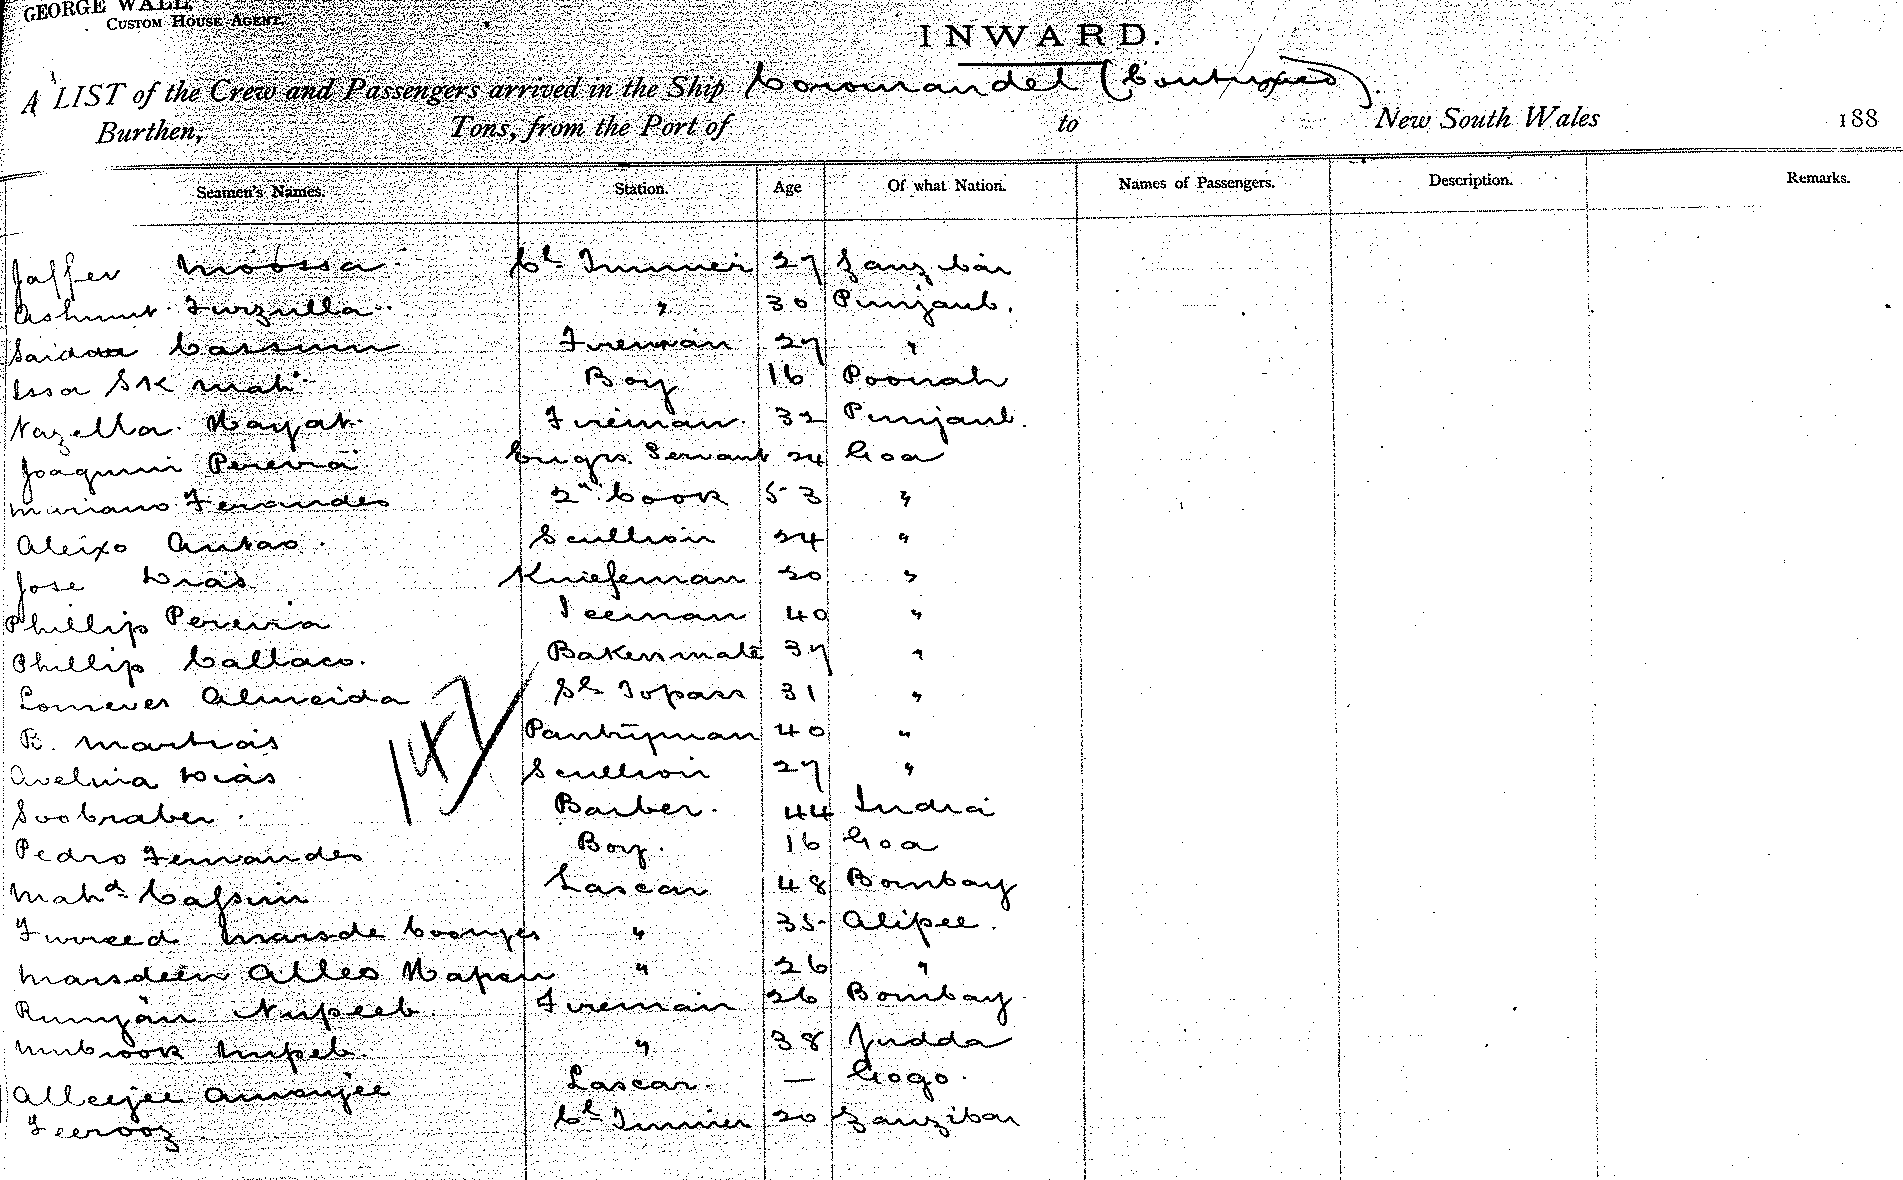 GEORGE WALL,
CUSTOM HOUSE AGENT.
INWARD.
A LIST of the Crew and Passengers arrived in the Ship Coromandel (Continued)
Burthen, Tons, from the Port of to New South Wales 188
Seamen's Names. Station. Age Of what Nation. Names of Passengers. Description. Remarks.
Jaffer Moossa Cl Trimmer 27 Zanzibar
Ashmut Furzulla " 30 Punjaub.
Cassum Fireman 27 "
Issa Sk Boy 16 Poonah
Nazella Hayat Fireman. 32 Punjaub.
Joaquim Pereira Engrs. Servant 24 Goa
Mariano Fernandes 2nd Cook 53 "
Aleixo Antao. Scullion 24 "
Jose Dias Kniefeman 20 "
Phillip Pereira Iceman 40 "
Phillip Collaco. Bakersmate 37 "
Almeida Sl Topass 31 "
B. Martias Pantryman 40 "
Avelina Dias Scullion 27 "
147
Soobraber. Barber. 44 India
Pedro Fernandes Boy. 16 Goa
Mahd Cassim Lascar 48 Bombay
Furreed " 35 Alipee.
Allee " 26 "
Rumjan Nupeeb Fireman 26 Bombay
Mubrook " 38 Judda
Alleejee Amonjee Lascar. — Gogo.
Feerooz Cl Trimmer 20 Zanzibar